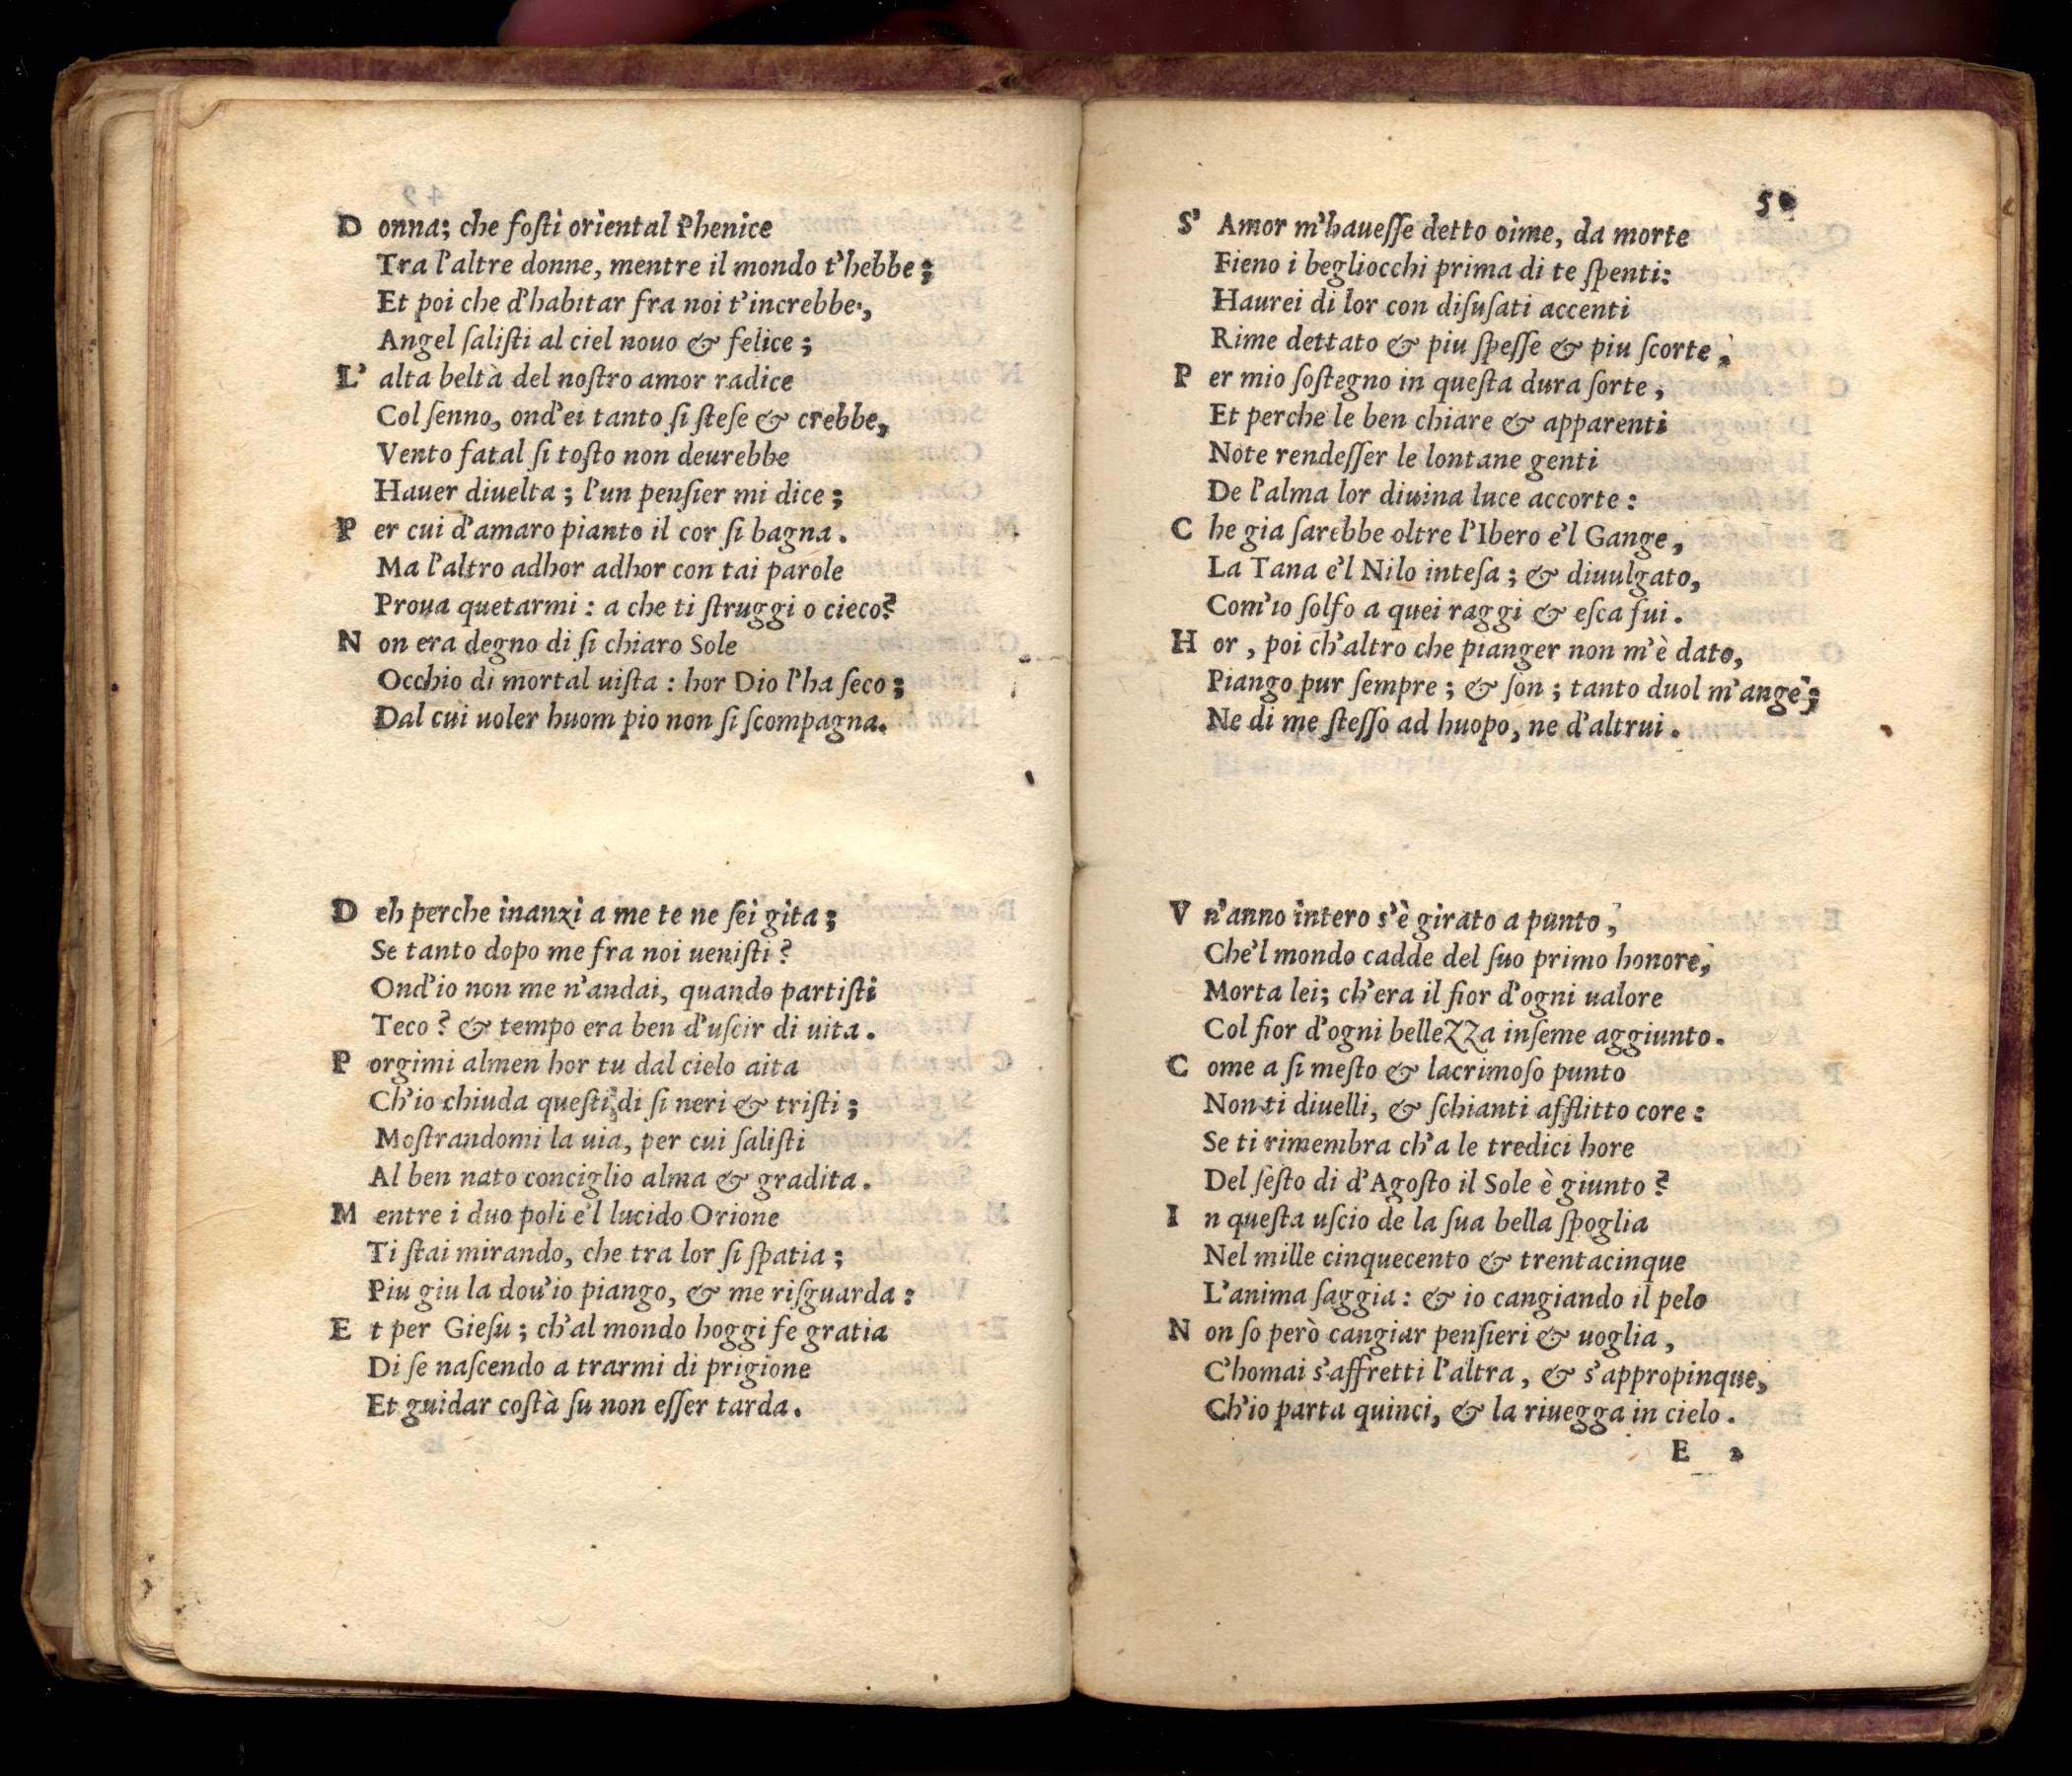 Donna; che foſti oriental Phenice
Tra l'altre donne, mentre il mondo t'hebbe;
Et poi che d'habitar fra noi t'increbbe,
Angel ſaliſti al ciel nouo & felice;
L'alta beltà del noſtro amor radice
Col ſenno, ond'ei tanto ſi ſteſe & crebbe,
Vento fatal ſi toſto non deurebbe
Hauer diuelta; l'un penſier mi dice;
Per cui d'amaro pianto il cor ſi bagna.
Ma l'altro adhor adhor con tai parole
Proua quetarmi: a che ti ſtruggi o cieco?
Non era degno di ſi chiaro Sole
Occhio di mortal uiſta: hor Dio l'ha ſeco;
Dal cui uoler huom pio non ſi ſcompagna.
Deh perche inanzi a me te ne ſei gita;
Se tanto dopo me fra noi ueniſti?
Ond'io non me n'andai, quando partiſti
Teco? & tempo era ben d'uſcir di uita.
Porgimi almen hor tu dal cielo aita
Ch'io chiuda queſti di ſi neri & triſti;
Moſtrandomi la uia, per cui ſaliſti
Al ben nato conciglio alma & gradita.
Mentre i duo poli e'l lucido Orione
Ti ſtai mirando, che tra lor ſi ſpatia;
Piu giu la dou'io piango, & me riſguarda:
Et per Gieſu; ch'al mondo hoggi fe gratia
Di ſe naſcendo a trarmi di prigione
Et guidar coſtà ſu non eſſer tarda.
50
S'Amor m'haueſſe detto oime, da morte
Fieno i begliocchi prima di te ſpenti:
Haurei di lor con diſuſati accenti
Rime dettato & piu ſpeſſe & piu ſcorte,
Per mio ſoſtegno in queſta dura ſorte,
Et perche le ben chiare & apparenti
Note rendeſſer le lontane genti
De l'alma lor diuina luce accorte:
Che gia ſarebbe oltre l'Ibero e'l Gange,
La Tana e'l Nilo inteſa; & diuulgato,
Com'io ſolfo a quei raggi & eſca fui.
Hor, poi ch'altro che pianger non m'è dato,
Piango pur ſempre; & ſon; tanto duol m'ange;
Ne di me ſteſſo ad huopo, ne d'altrui.
Vn'anno intero s'è girato a punto,
Che'l mondo cadde del ſuo primo honore,
Morta lei; ch'era il fior d'ogni ualore
Col fior d'ogni bellezza inſeme aggiunto.
Come a ſi meſto & lacrimoſo punto
Non ti diuelli, & ſchianti afflitto core:
Se ti rimembra ch'a le tredici hore
Del ſeſto di d'Agoſto il Sole è giunto?
In queſta uſcio de la ſua bella ſpoglia
Nel mille cinquecento & trentacinque
L'anima ſaggia: & io cangiando il pelo
Non ſo però cangiar penſieri & uoglia,
C'homai s'affretti l'altra, & s'appropinque,
Ch'io parta quinci, & la riuegga in cielo.
E 2